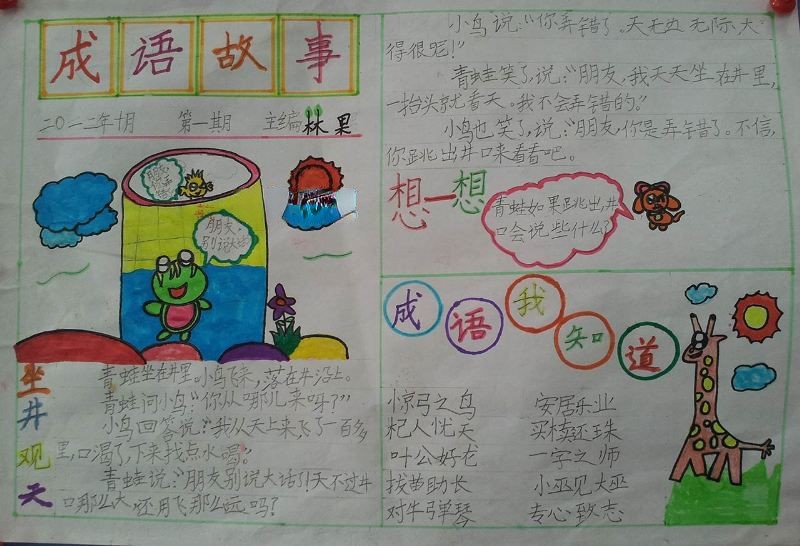 成语故事
二〇一二年十月 第一期 主编 林果
朋友,
别说大话
坐井观天
青蛙坐在井里。小鸟飞来,落在井沿上。
青蛙问小鸟:“你从哪儿来呀?”
小鸟回答说:“我从天上来,飞了一百多
里,口渴了,下来找点水喝。”
青蛙说:“朋友,别说大话了!天不过井
口那么大,还用飞那么远吗?”
小鸟说:“你弄错了。天无边无际,大
得很呢!”
青蛙笑了,说:“朋友,我天天坐在井里,
一抬头就看天。我不会弄错的。”
小鸟也笑了,说:“朋友,你是弄错了。不信,
你跳出井口来看看吧。
想一想
青蛙如果跳出井
口会说些什么?
成语我知道
惊弓之鸟 安居乐业
杞人忧天 买椟还珠
叶公好龙 一字之师
拔苗助长 小巫见大巫
对牛弹琴 专心致志